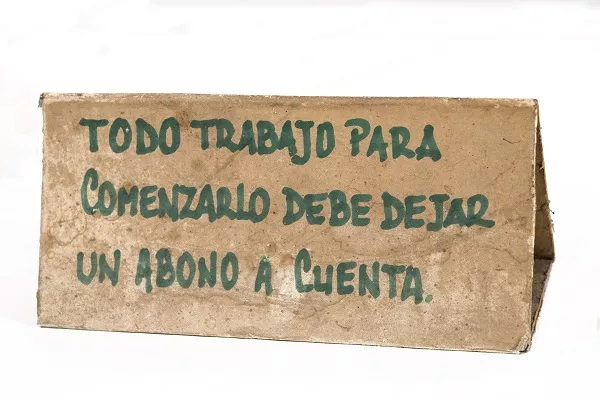 TODO TRABAJO PARA
COMENZARLO DEBE DEJAR
UN ABONO A CUENTA.